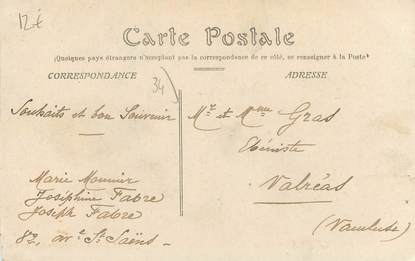 12€
Carte Postale
(Quelques pays étrangers n'acceptant pas la correspondance de ce côté, se renseigner à la Poste)
CORRESPONDANCE
ADRESSE
34
Souhaits et bon Souvenir
Marie Monnier
Joséphine Fabre
Joseph Fabre
82, av.e St Saëns
Mr et Mme Gras
Ebéniste
Valréas
(Vaucluse)